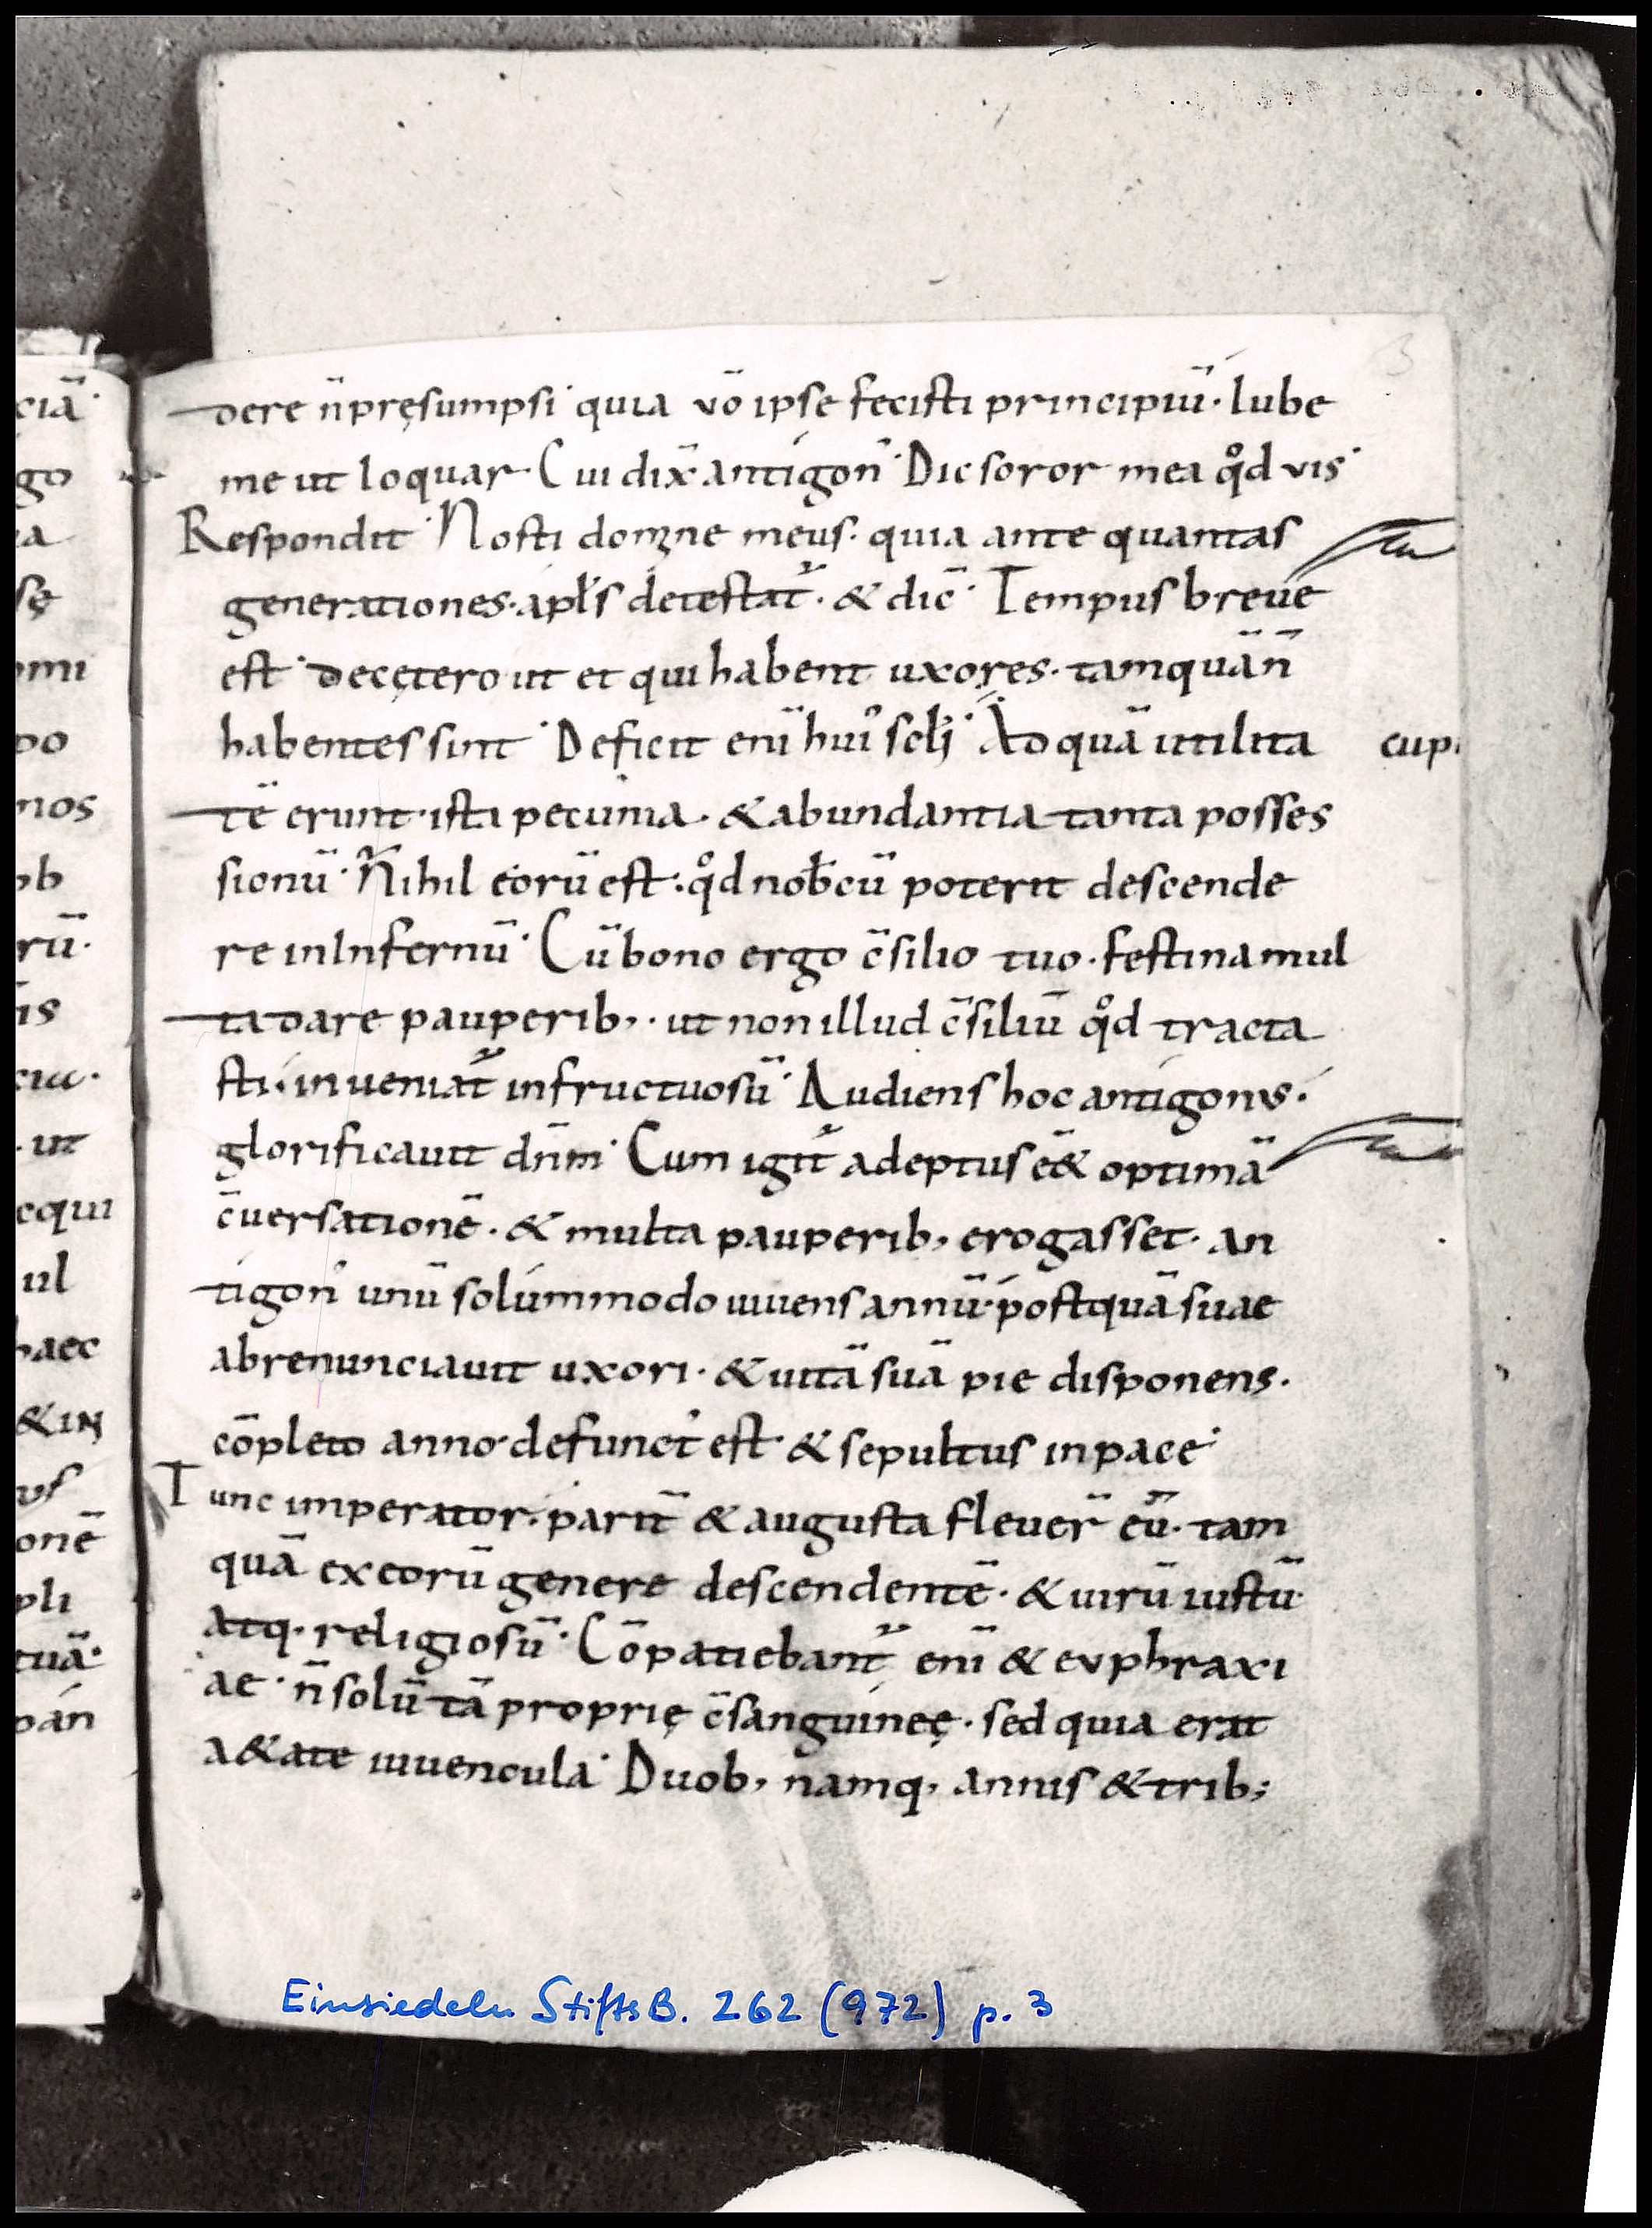 dere n̄ pręsumpsi quia vō ipse fecisti principiū. Iube
me ut loquar. Cui dix̄ antigon᾿ Dic soror mea qͦd vis
Respondit Nosti domne meus. quia ante quantas
generationes. apl̄s detestat᷒. & dic̄ Tempus breue
est decętero ut et qui habent uxores. tamquā n̄
habentes sint Deficit enī hui᾿ scl̄i Ad quā utilita
tē erunt ista pecunia. & abundantia tanta posses
sionū Nihil eorū est. qͦd nob̄cū poterit descende
re in Infernū Cū bono ergo c̄silio tuo. festina mul
ta dare pauperib,. ut non illud c̄siliū qͦd tracta
sti. inueniat᷒ infructuosū Audiens hoc antigonus.
glorificauit dn̄m Cum igit᷒ adeptus ē& optimā
c̄uersationē. & multa pauperib, erogasset. an
tigon᾿ unū solummodo uiuens annū. postquā suae
abrenunciauit uxori. & uitā suā pie disponens.
cōpleto anno. defunct᾿ est & sepultus in pace
Tunc imperator. parit̄ & augusta fleuer̄ eū. tam
quā ex eorū genere descendentē. & uirū iustū
atq. religiosū. Cōpatiebant᷒ enī & evphraxi
ae. n̄ solū tā proprię c̄sanguineę. sed quia erat
a&ate iuuencula Duob, namq, annis & trib;
cup
ciā
go
a
sę
omi
po
nos
ob
rū.
is
cia.
. ut
equi
ul
haec
& in
us
onē
pli
tuā.
pan
3
Einsiedeln StiftsB. 262 (972) p. 3